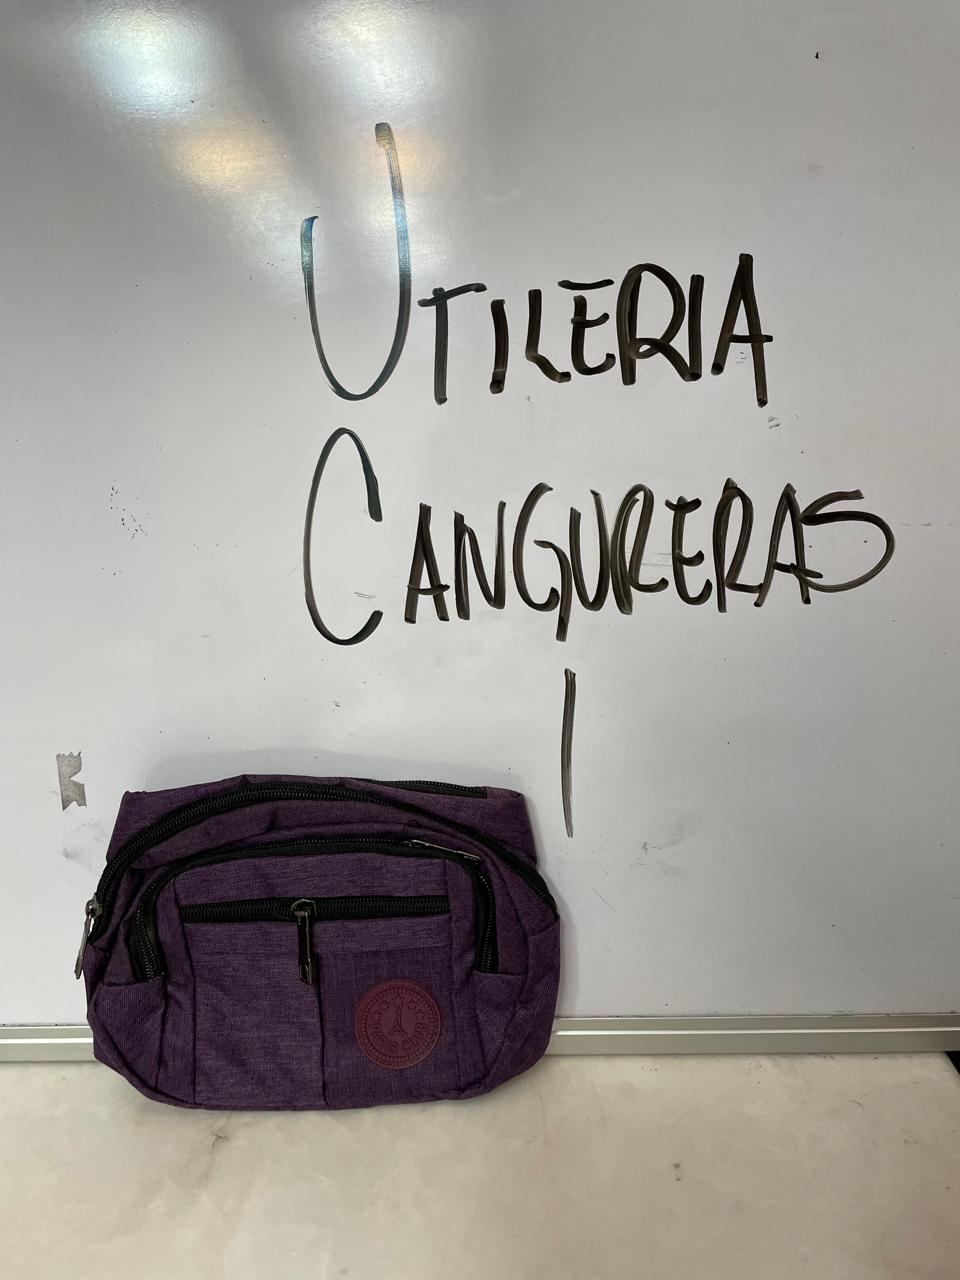 UTILERIA
CANGURERAS
1
PARIS CLUB